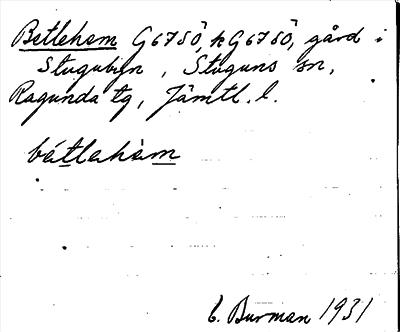 Betlehem G6750, kG6750, gård i
Stugubyn, Stuguns sn,
Ragunda tg, Jämtl. l.
bétlehèm
C. Burman 1931